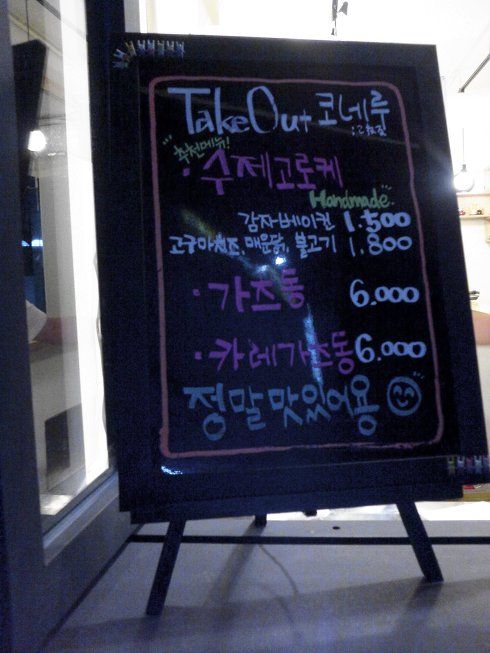 TakeOut 코네루
추천메뉴!
· 수제고로케
Handmade
감자베이컨 1.500
고구마치즈, 매운닭, 불고기 1.800
· 가츠동 6.000
· 카레가츠동 6.000
정말 맛있어용